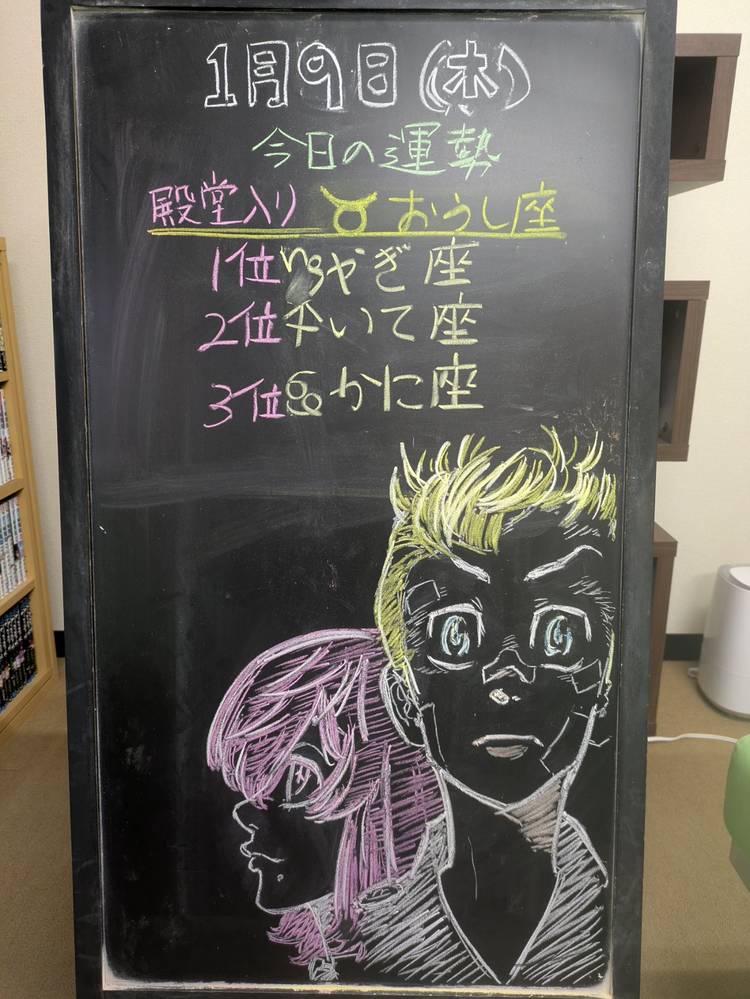 1月9日(木)
今日の運勢
殿堂入り ♉ おうし座
1位♑やぎ座
2位♐いて座
3位♋かに座